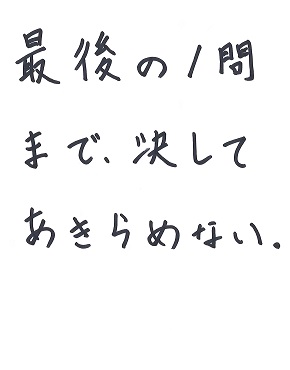 最後の1問
まで、決して
あきらめない。